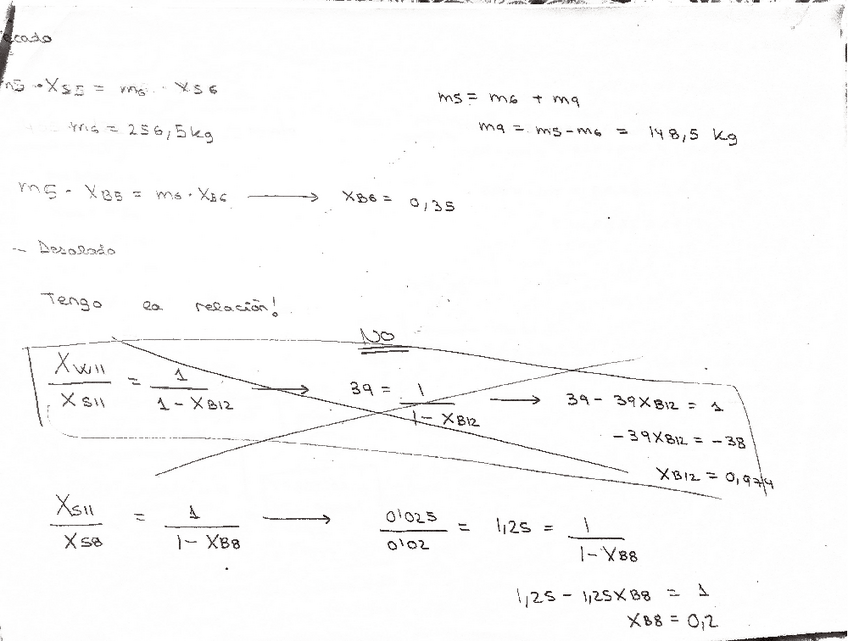 ecado
m5 · XS5 = m6 · XS6
m5 = m6 + m9
m6 = 256,5 kg
m9 = m5 - m6 = 148,5 kg
m5 · XB5 = m6 · XB6 ⟶ XB6 = 0,35
- Desalado
Tengo la relación!
NO
XW11/XS11 = 1/(1 - XB12) ⟶ 39 = 1/(1 - XB12) ⟶ 39 - 39XB12 = 1
-39XB12 = -38
XB12 = 0,974
XS11/XS8 = 1/(1 - XB8) ⟶ 0'025/0'02 = 1,25 = 1/(1 - XB8)
1,25 - 1,25XB8 = 1
XB8 = 0,2